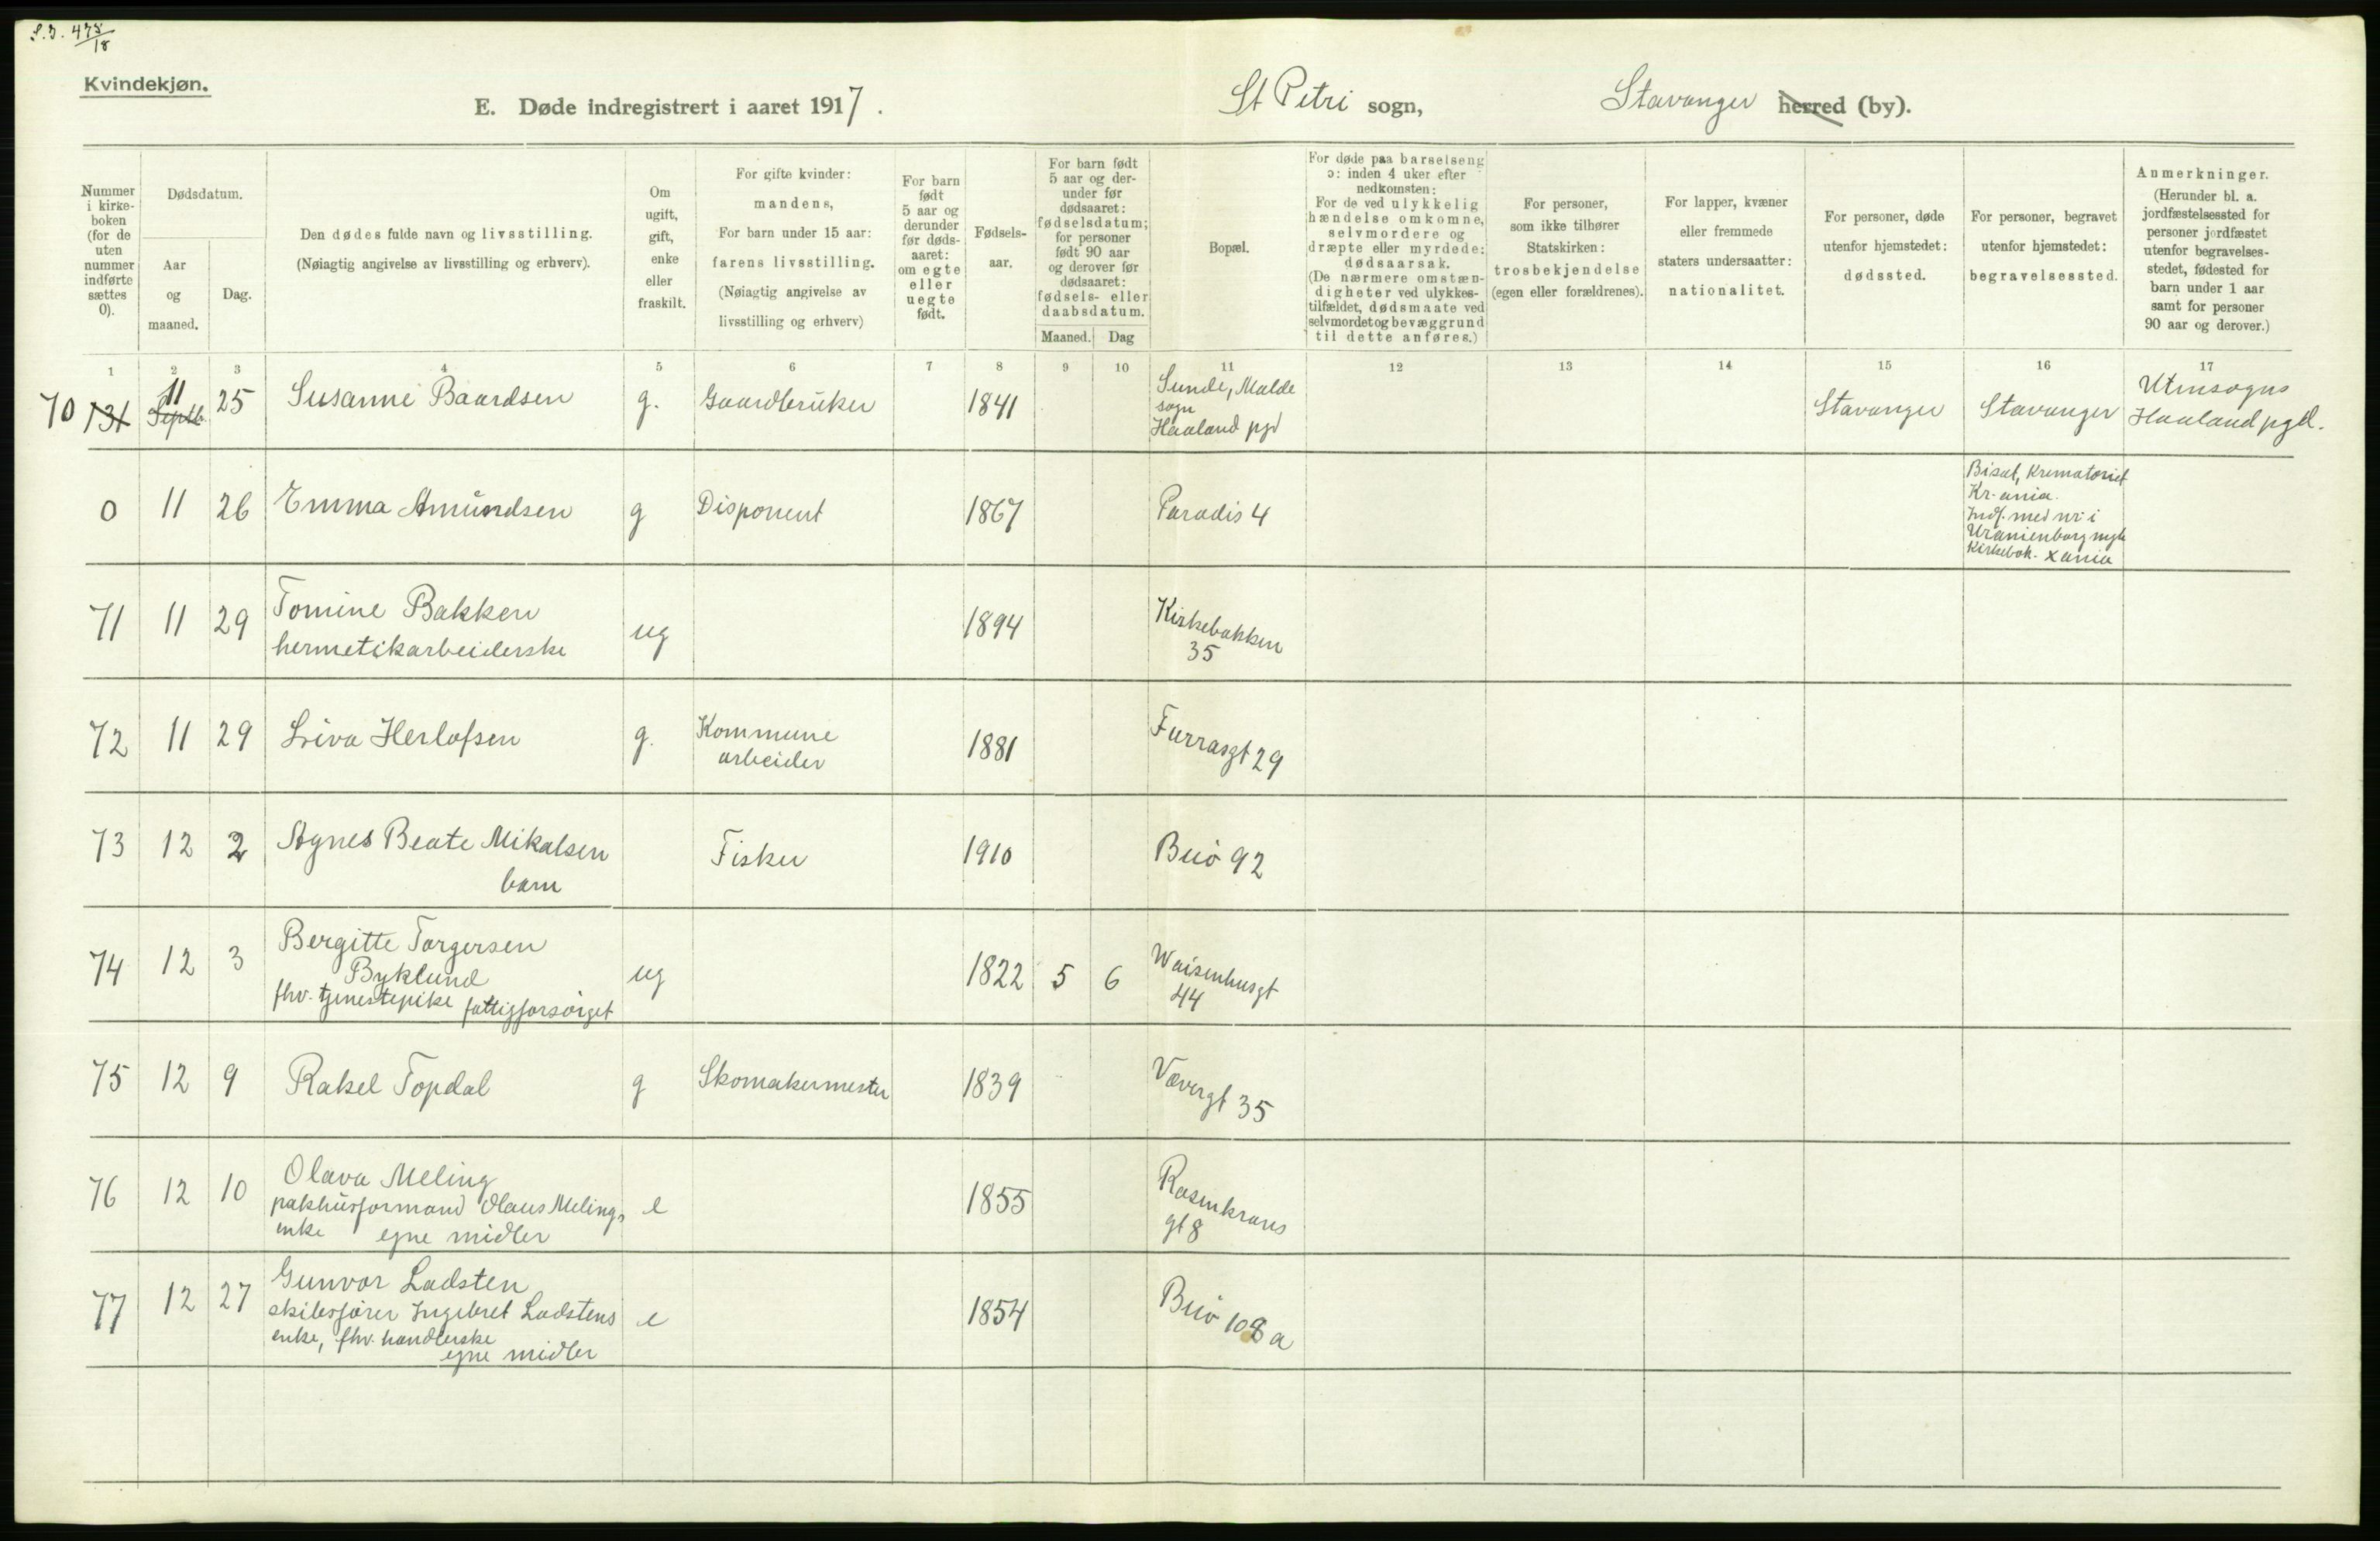 S.J. 475/18
Kvindekjøn.
E. Døde indregistrert i aaret 1917.
St Petri sogn,
Stavanger herred (by).
Nummer i kirkeboken (for de uten nummer indførte sættes 0).
Dødsdatum.
Aar og maaned.
Dag.
Den dødes fulde navn og livsstilling.
(Nøiagtig angivelse av livsstilling og erhverv).
Om ugift, gift, enke eller fraskilt.
For gifte kvinder: mandens, For barn under 15 aar: farens livsstilling. (Nøiagtig angivelse av livsstilling og erhverv)
For barn født 5 aar og derunder før dødsaaret: om egte eller uegte født.
Fødselsaar.
For barn født 5 aar og derunder før dødsaaret: fødselsdatum; for personer født 90 aar og derover før dødsaaret: fødsels- eller daabsdatum.
Maaned. Dag
Bopæl.
For døde paa barselseng ɔ: inden 4 uker efter nedkomsten: For de ved ulykkelig hændelse omkomne, selvmordere og dræpte eller myrdede: dødsaarsak. (De nærmere omstændigheter ved ulykkestilfældet, dødsmaate ved selvmordet og bevæggrund til dette anføres.)
For personer, som ikke tilhører Statskirken: trosbekjendelse (egen eller forældrenes).
For lapper, kvæner eller fremmede staters undersaatter: nationalitet.
For personer, døde utenfor hjemstedet: dødssted.
For personer, begravet utenfor hjemstedet: begravelsessted.
Anmerkninger.
(Herunder bl. a. jordfæstelsessted for personer jordfæstet utenfor begravelsesstedet, fødested for barn under 1 aar samt for personer 90 aar og derover.)
1 2 3 4 5 6 7 8 9 10 11 12 13 14 15 16 17
70 131 11 Septb. 25 Susanne Baardsen g. Gaardbruker 1841 Sunde, Malde sogn Haaland pgd Stavanger Stavanger Utensogns Haaland pgd.
0 11 26 Emma Amundsen g Disponent 1867 Paradis 4 Bisat, Krematoriet Kr.ania. Indf. med nr. i Uranienborg mgh Kirkebok. Xania
71 11 29 Tomine Bakken
hermetikarbeiderske ug 1894 Kirkebakken 35
72 11 29 Siva Herlofsen g. Kommune arbeider 1881 Furrasgt 29
73 12 2 Agnes Beate Mikalsen
barn Fisker 1910 Buö 92
74 12 3 Bergitte Torgersen
Byklund
fhv. tjenestepike fattigforsörget ug 1822 5 6 Waisenhusgt 44
75 12 9 Rakel Topdal g Skomakermester 1839 Vævergt 35
76 12 10 Olava Meling
pakhusformand Olaus Melings
enke egne midler e 1855 Rosenkrans gt 8
77 12 27 Gunvor Ladsten
skibsförer Ingebret Ladstens
enke, fhv. handlerske
egne midler e 1854 Buö 108 a